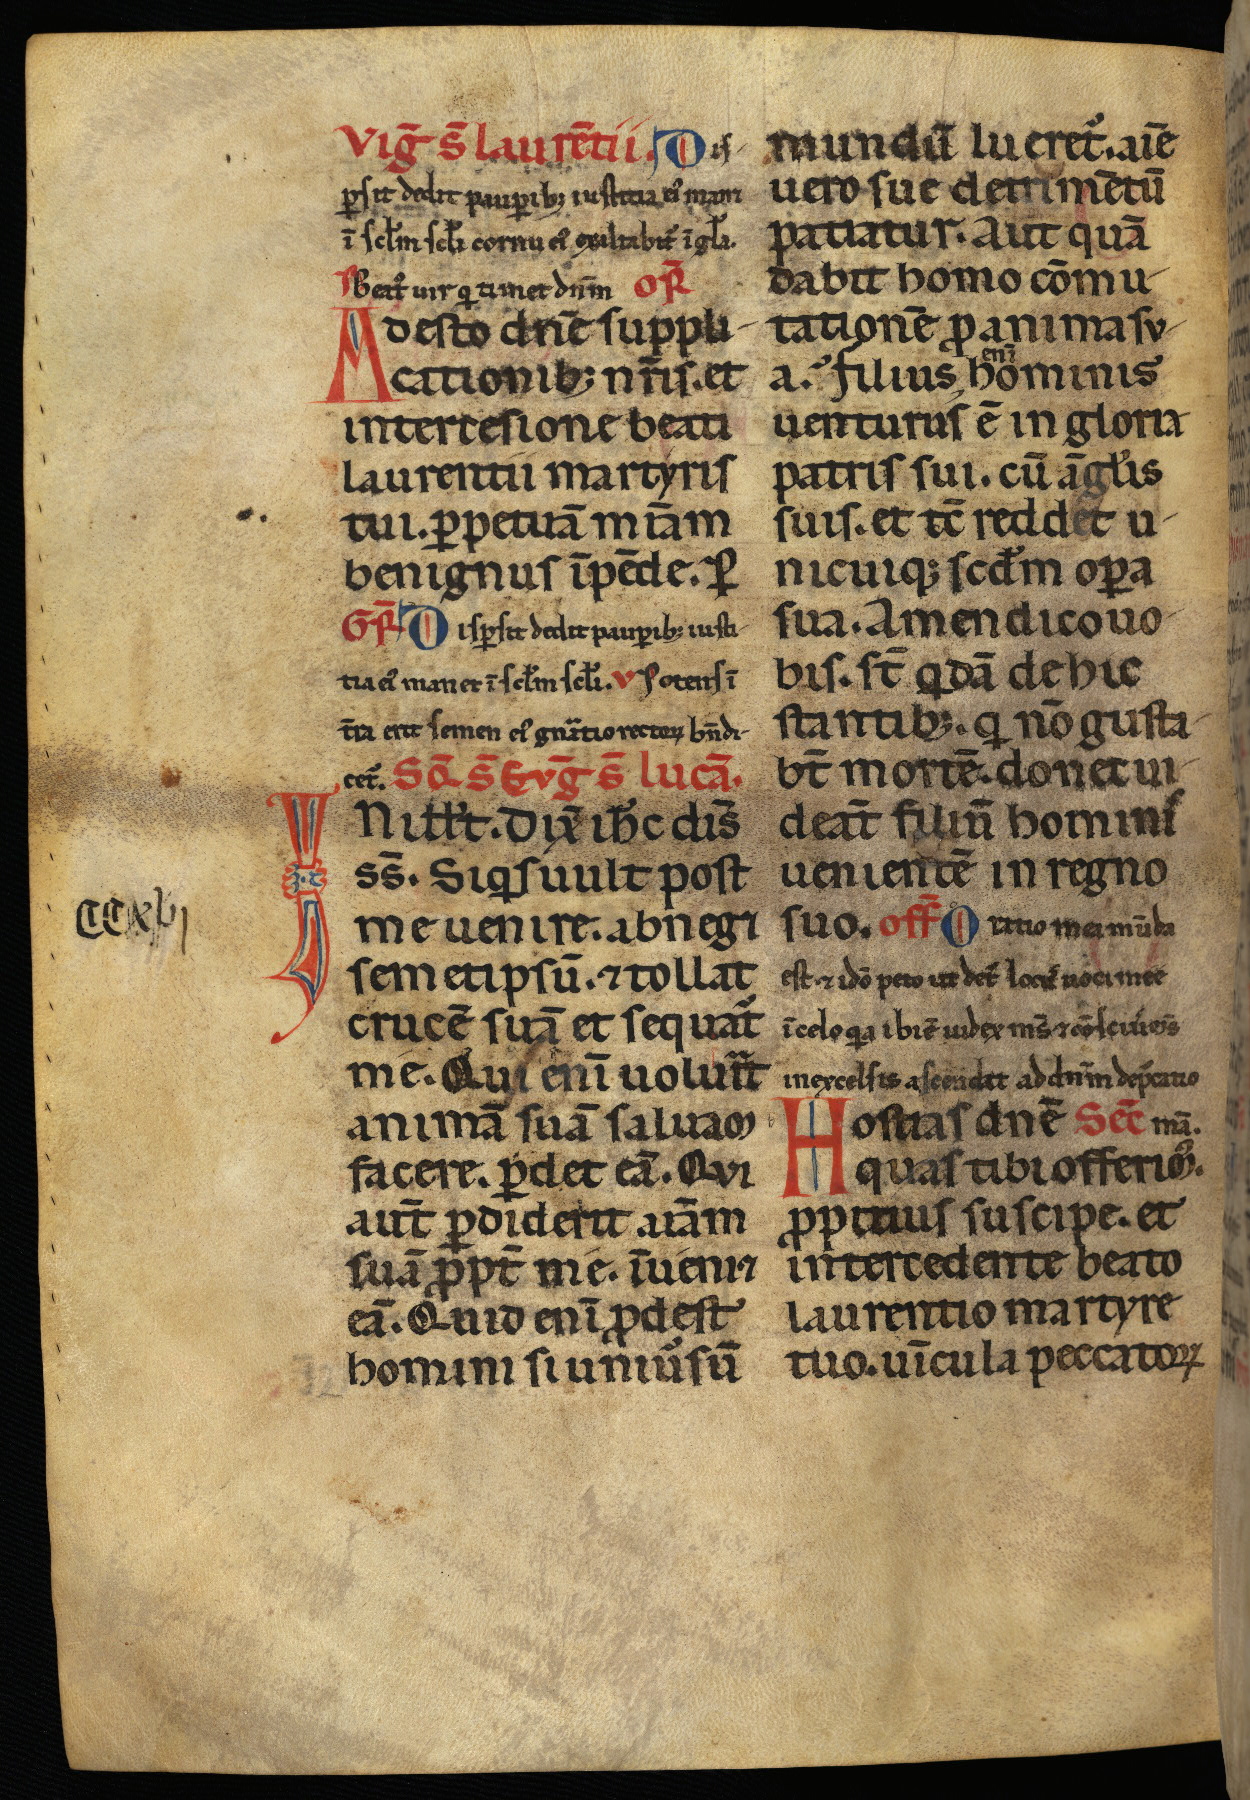 Vig̅ s̅ laure̅tii. Dis-
ꝑsit dedit pauꝑib; iustitia ei᷒ man&
i̅ scl̅m scl̅i cornu ei᷒ exaltabit᷑ i̅ gl̅a.
Beat᷒ uir qi timet dn̅m or̅
Adesto dn̅e suppli-
cationib; nr̅is. et
intercesione beati
laurentii martyris
tui. ꝑpetua̅ mi̅am
benignus i̅pe̅de. P̲
Gr̅ Disꝑsit dedit pauꝑib; iusti-
tia ei᷒ manet i̅ scl̅m scl̅i. V Potens i̅
t̅ra erit semen ei᷒ gn̅atio rectoꝝ bn̅di-
cet᷑. Sc̅d S̅ Evg̅ s̅ luca̅.
IN ill̅ t̅. Dix̅ ih̅c dis̅
ss̅. Siqi suult post
me uenire. abneg&
semetipsu̅. ⁊ tollat
cruce̅ sua̅ et sequat᷑
me. Qui eni̅ uolu̅it
anima̅ sua̅ salua̅
facere. ꝑdet ea̅. Qvi
aut̅ ꝑdiderit ai̅am
sua̅ ꝓpt̅ me. i̅ueni&
ea̅. Quid eni̅ ꝓdest
homini si uniu᷑su̅
CCXVI
mundu̅ lucret᷑. ai̅e
uero sue detrime̅tu̅
patiatur. Aut qua̅
dabit homo co̅mu-
tatione̅ ꝓ anima sv-
a. Filius eni̅ hominis
uenturus e̅ in gloria
patris sui. cu̅ a̅gl̅is
suis. et tc̅ reddet u-
nicuiq; scd̅m oꝑa
sua. Amen dico uo-
bis. st̅ qida̅ de hic
stantib;. qi no̅ gusta-
bt̅ morte̅. donec ui-
deat̅ filiu̅ hominis
ueniente̅ in regno
suo. off̅ Oratio mea mu̅da
est. ⁊ ido̅ peto ut det᷑ loc᷒ uoci mee
i̅ celo qia ibi e̅ iudex ms̅ ⁊ co̅sci᷒ me᷒
in excelsis ascendat ad dn̅m dep̅catio
Hostias dn̅e Sec̅ ma̅.
quas tibi offerim᷒.
ꝓpitius suscipe. et
intercedente beato
laurentio martyre
tuo. ui̅cula peccatoꝝ